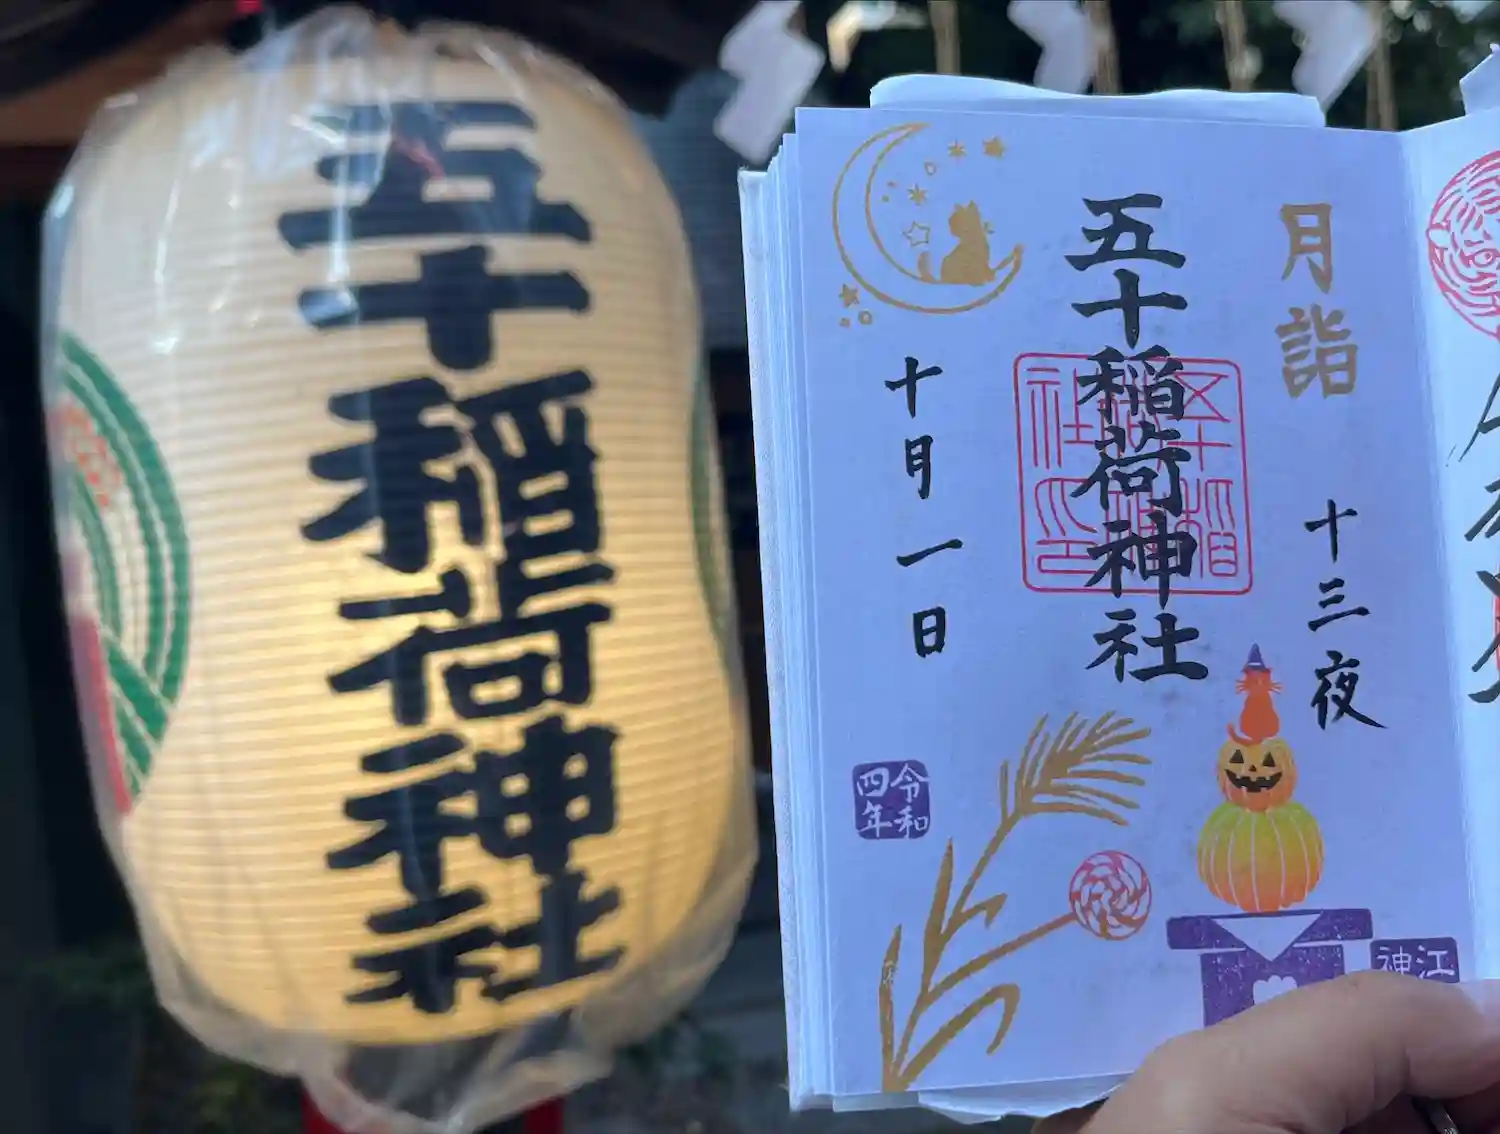 五十稲荷神社
月詣
十三夜
五十稲荷神社
十月一日
令和
四年
江
神